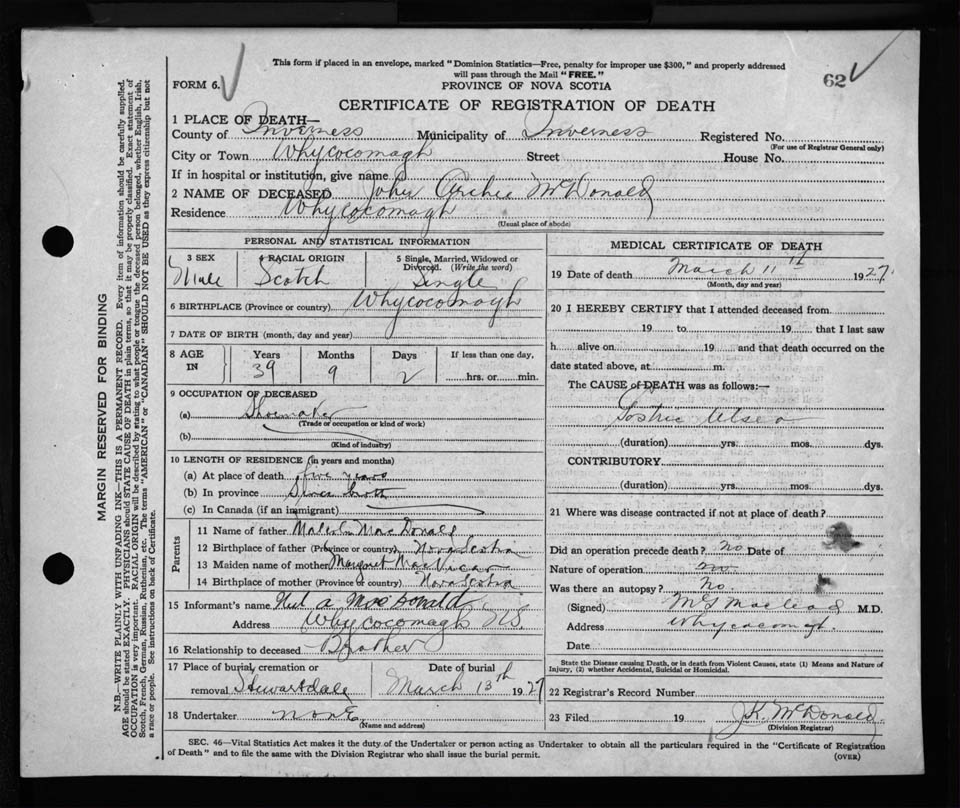 This form if placed in an envelope, marked "Dominion Statistics—Free, penalty for improper use $300," and properly addressed
will pass through the Mail "FREE."
FORM 6.
PROVINCE OF NOVA SCOTIA
62
CERTIFICATE OF REGISTRATION OF DEATH
1 PLACE OF DEATH—
County of Inverness Municipality of Inverness Registered No.
(For use of Registrar General only)
City or Town Whycocomagh Street House No.
If in hospital or institution, give name
2 NAME OF DECEASED John Archie McDonald
Residence Whycocomagh
(Usual place of abode)
PERSONAL AND STATISTICAL INFORMATION
3 SEX 4 RACIAL ORIGIN 5 Single, Married, Widowed or
Divorced. (Write the word)
Male Scotch Single
6 BIRTHPLACE (Province or country) Whycocomagh
7 DATE OF BIRTH (month, day and year)
8 AGE IN Years Months Days If less than one day,
39 9 2 hrs. or min.
9 OCCUPATION OF DECEASED
(a) Shoemaker
(Trade or occupation or kind of work)
(b)
(Kind of industry)
10 LENGTH OF RESIDENCE (in years and months)
(a) At place of death five years
(b) In province Since birth
(c) In Canada (if an immigrant)
Parents
11 Name of father Malcolm MacDonald
12 Birthplace of father (Province or country) Nova Scotia
13 Maiden name of mother Margaret MacVicar
14 Birthplace of mother (Province or country) Nova Scotia
15 Informant's name Neil A MacDonald
Address Whycocomagh N.S.
16 Relationship to deceased Brother
17 Place of burial, cremation or Date of burial
removal Stewartdale March 13th 1927
18 Undertaker none
(Name and address)
MEDICAL CERTIFICATE OF DEATH
19 Date of death March 11th 1927
(Month, day and year)
20 I HEREBY CERTIFY that I attended deceased from
19 to 19 that I last saw
h alive on 19 and that death occurred on the
date stated above, at m.
The CAUSE of DEATH was as follows:—
Gastric Ulser
(duration) yrs. mos. dys.
CONTRIBUTORY
(duration) yrs. mos. dys.
21 Where was disease contracted if not at place of death?
Did an operation precede death? no Date of
Nature of operation no
Was there an autopsy? No
(Signed) MacLeod M.D.
Address Whycocomagh
Date
State the Disease causing Death, or in death from Violent Causes, state (1) Means and Nature of
Injury, (2) whether Accidental, Suicidal or Homicidal.
22 Registrar's Record Number
23 Filed 19 J.K. McDonald
(Division Registrar)
SEC. 46—Vital Statistics Act makes it the duty of the Undertaker or person acting as Undertaker to obtain all the particulars required in the "Certificate of Registration
of Death" and to file the same with the Division Registrar who shall issue the burial permit.
(OVER)
MARGIN RESERVED FOR BINDING
N.B.—WRITE PLAINLY WITH UNFADING INK—THIS IS A PERMANENT RECORD. Every item of information should be carefully supplied.
AGE should be stated EXACTLY. PHYSICIANS should STATE CAUSE OF DEATH in plain terms, so that it may be properly classified. Exact statement of
OCCUPATION is very important. RACIAL ORIGIN will be described by stating to what people or tongue the deceased person belonged, whether English, Irish,
Scotch, French, German, Russian, Ruthenian, etc. The terms "AMERICAN" or "CANADIAN" SHOULD NOT BE USED as they express citizenship but not
a race or people. See instructions on back of Certificate.